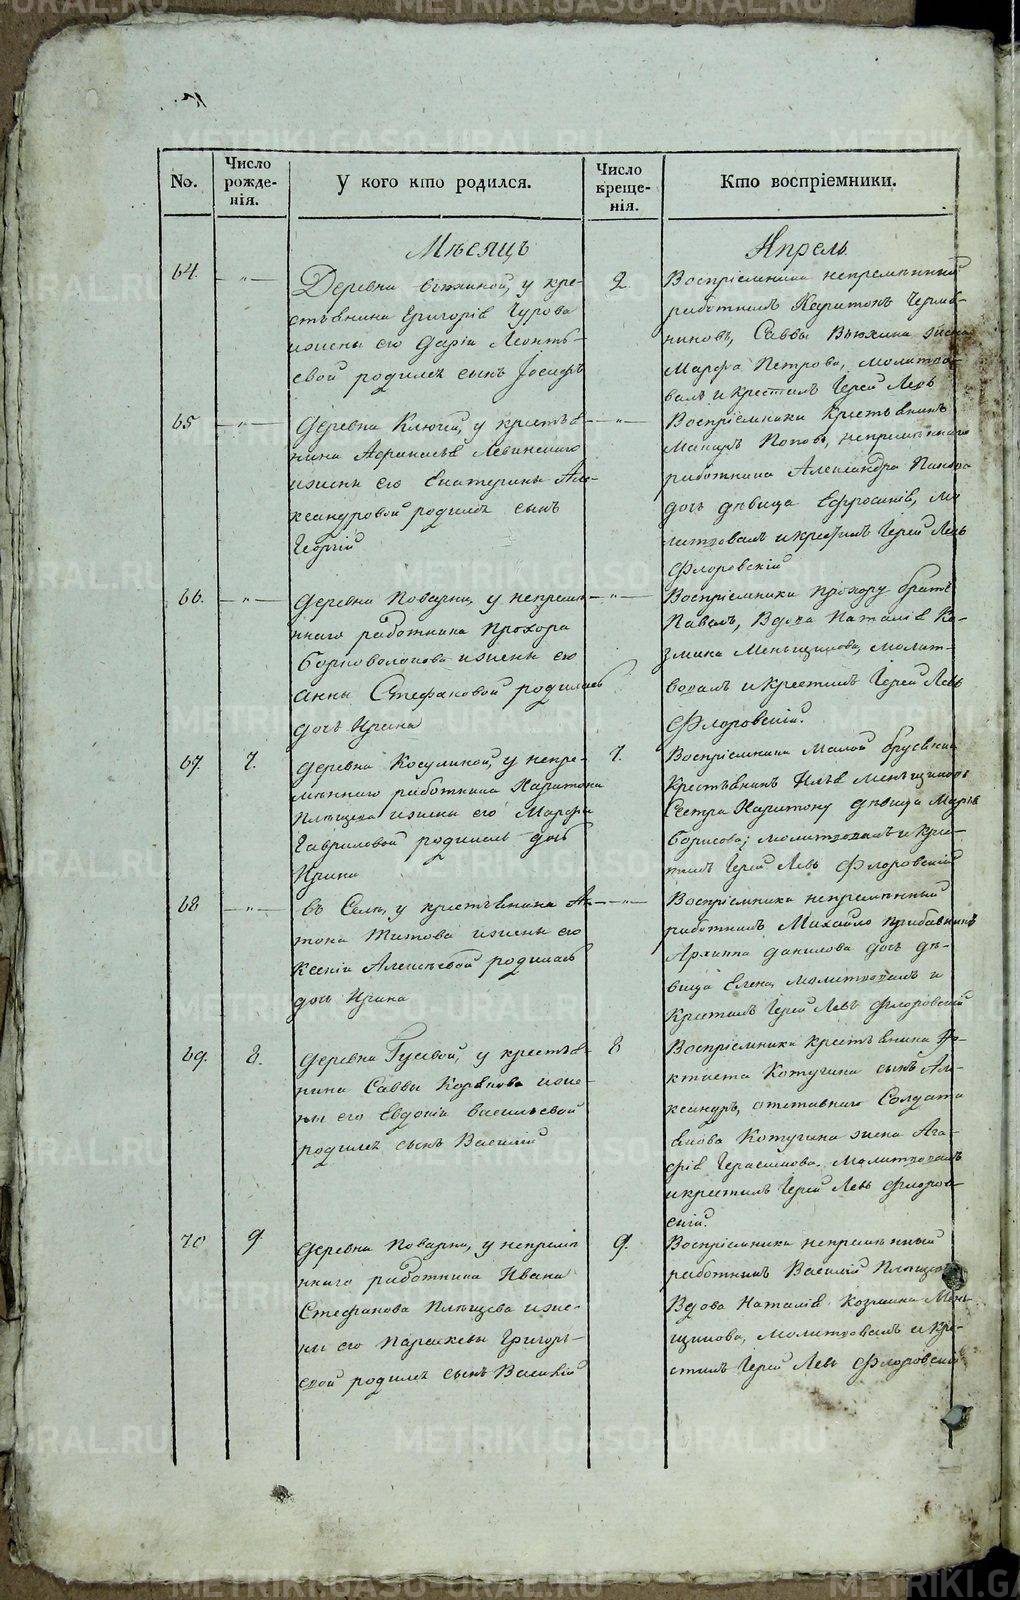 No.
Число рожде-нія.
У кого кто родился.
Число креще-нія.
Кто воспріемники.
Мѣсяцъ
Апрель
64.
— „ —
Деревни Вьюхиной, у кре-
стьянина Григорія Гурова
и жены его Дарьи Леонть-
евой родился сынъ Іосифъ
2
Воспріемники непремѣнный
работникъ Харитонъ
Саввы Вьюхина жена
Марфа Петрова, молитво-
валъ и крестилъ Іерей Левъ
65
— „ —
Деревни Ключей, у крестья-
нина Левинскаго
и жены его Екатерины Але-
ксандровой родился сынъ
Георгій
— „ —
Воспріемники крестьянинъ
Макаръ Поповъ, непремѣннаго
работника Александра
дочь дѣвица Ефросинія, мо-
литвовалъ и крестилъ Іерей Левъ
Флоровскій
66.
— „ —
Деревни Поварни, у непремѣ-
ннаго работника Прохора
Борноволокова и жены его
Анны Стефановой родилась
дочь Ирина
— „ —
Воспріемники Прохору братъ
Павелъ, Вдова Наталія Ко-
змина Меньщикова, молит-
вовалъ и крестилъ Іерей Левъ
Флоровскій.
67.
7.
Деревни Косулиной, у непре-
мѣннаго работника Харитона
Плѣщева и жены его Марфы
Гавриловой родилась дочь
Ирина
7.
Воспріемники Малой Брусянки
крестьянинъ Илья Меньщиковъ
Сестра Харитону дѣвица Марья
Борисова; молитвовалъ и крес-
тилъ Іерей Левъ Флоровскій
68
— „ —
въ Селѣ, у крестьянина Ан-
тона Титова и жены его
Ксеніи Алексѣевой родилась
дочь Ирина
— „ —
Воспріемники непремѣнный
работникъ Михайло Прибавкинъ
Архиппа Данилова дочь дѣ-
вица Елена, молитвовалъ и
крестилъ Іерей Левъ Флоровскій
69.
8.
Деревни Гусевой, у крестья-
нина Саввы Корякова и же-
ны его Евдокіи Васильевой
родился сынъ Василій
8
Воспріемники крестьянина Фе-
ктиста Котугина сынъ Але-
ксандръ, отставнаго Солдата
Іакова Котугина жена Ага-
фія Герасимова. молитвовалъ
и крестилъ Іерей Левъ Флоров-
скій.
70
9
Деревни Поварни, у непремѣ-
ннаго работника Ивана
Стефанова Плѣщева и же-
ны его Параскевы Григорь-
евой родился сынъ Василій
9.
Воспріемники непремѣнный
работникъ Василій Плѣщевъ
Вдова Наталія Козмина Мень-
щикова, молитвовалъ и кре-
стилъ Іерей Левъ Флоровскій
METRIKI.GASO-URAL.RU